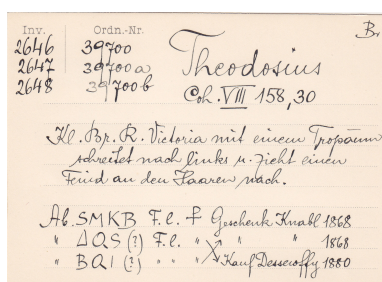 Br
Inv. Ordn.-Nr.
2646 39700
2647 39700a
2648 39700b
Theodosius
Coh. VIII 158,30
Kl. Br. R. Victoria mit einem Tropäum
schreitet nach links u. zieht einen
Feind an den Haaren nach.
Ab. SMKB F.l. Geschenk Knabl 1868
" ΔQS (?) F.l. " " " 1868
" BQI (?) " " " Kauf Desseroffy 1880